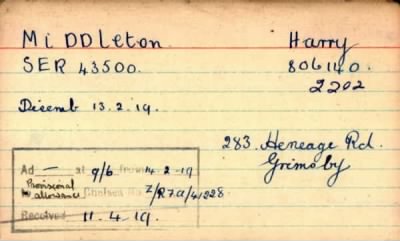 Middleton. Harry
SER 43500. 806140.
2202
Disemb 13.2.19.
283 Heneage Rd.
Grimsby
Ad — at 9/6 from 14-2-19
Provisional
allowance Chelsea No Z/R7a/41228
Received 11.4.19.